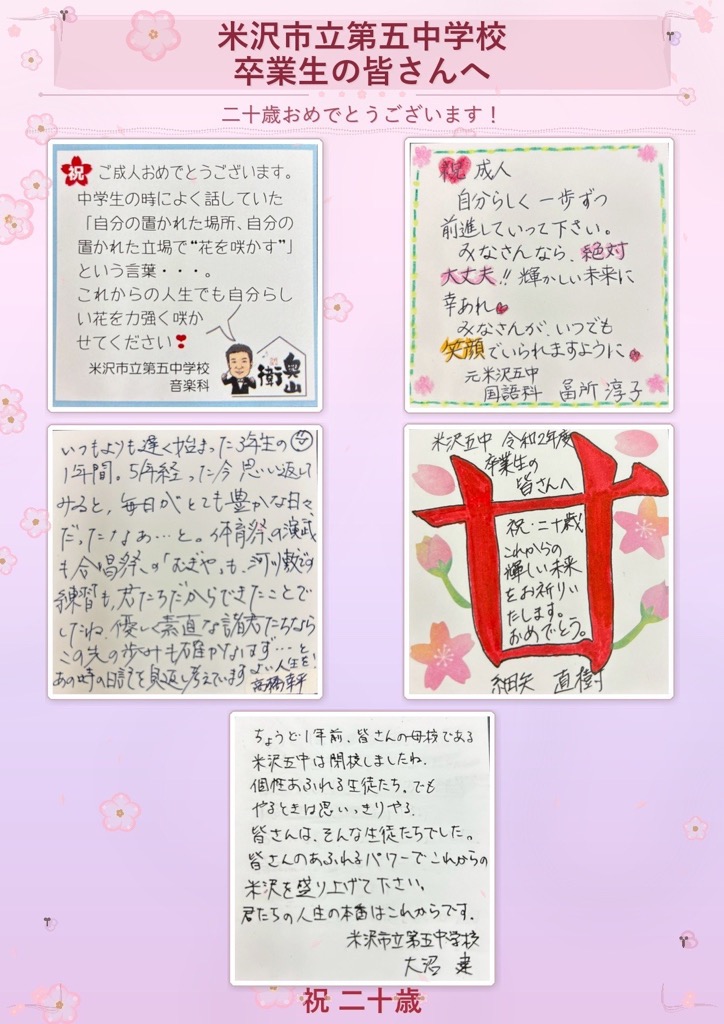 米沢市立第五中学校
卒業生の皆さんへ
二十歳おめでとうございます！
祝 ご成人おめでとうございます。
中学生の時によく話していた
「自分の置かれた場所、自分の
置かれた立場で“花を咲かす”」
という言葉・・・。
これからの人生でも自分らし
い花を力強く咲か
せてください❣
米沢市立第五中学校
音楽科
奥山
衛
祝 成人
自分らしく 一歩ずつ
前進していって下さい。
みなさんなら、絶対
大丈夫!! 輝かしい未来に
幸あれ
みなさんが、いつでも
笑顔でいられますように
元米沢五中
国語科 冨所 淳子
いつもよりも遅く始まった3年生の
1年間。5年経った今思い返して
みると、毎日がとても豊かな日々
だったなぁ…と。体育祭の演武
も合唱祭の「むぎや」も、河川敷での
練習も、君たちだからできたことで
したね。優しく素直な諸君たちなら
この先の歩みも確かなはず…と、
あの時の日記を見返し考えています よい人生を！
高橋幸平
米沢五中 令和2年度
卒業生の
皆さんへ
廿
祝・二十歳
これからの
輝しい未来
をお祈りい
たします。
おめでとう。
細矢 直樹
ちょうど1年前、皆さんの母校である
米沢五中は閉校しましたね。
個性あふれる生徒たち。でも
やるときは思いっきりやる。
皆さんは、そんな生徒たちでした。
皆さんのあふれるパワーでこれからの
米沢を盛り上げて下さい。
君たちの人生の本番はこれからです。
米沢市立第五中学校
大沼 建
祝 二十歳